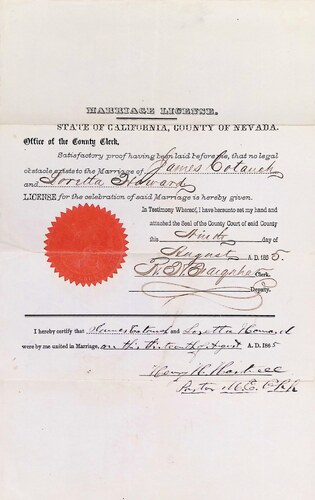 MARRIAGE LICENSE.
STATE OF CALIFORNIA, COUNTY OF NEVADA.
Office of the County Clerk,
Satisfactory proof having been laid before me, that no legal
obstacle exists to the Marriage of James
and Loretta Howard
LICENSE for the celebration of said Marriage is hereby given.
In Testimony Whereof, I have hereunto set my hand and
attached the Seal of the County Court of said County
this Ninth day of
August A.D. 1865.
Clerk.
Deputy.
I hereby certify that and Loretta Howard
were by me united in Marriage, on this thirteenth of August A.D. 1865
Henry
Pastor M.E. Ch